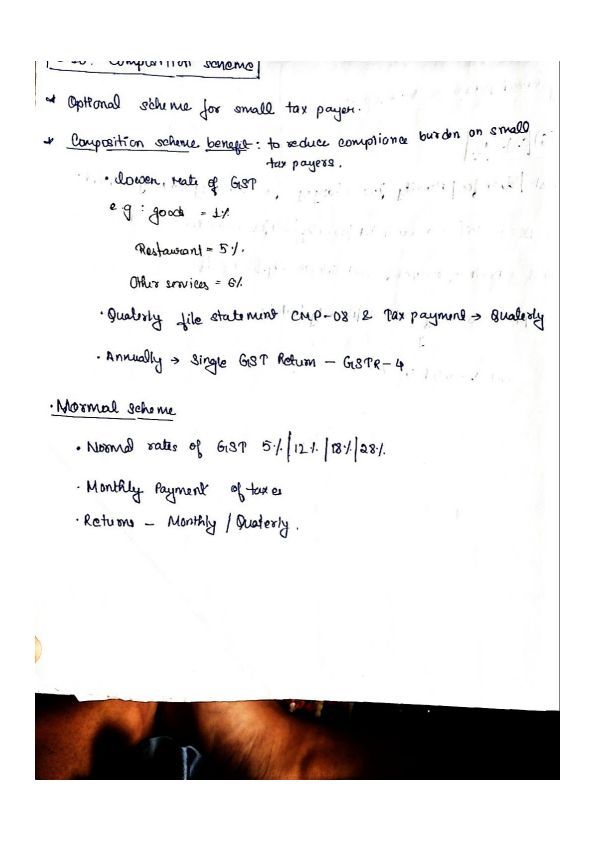 Composition scheme
* Optional scheme for small tax payer.
* Composition scheme benefit : to reduce compliance burden on small
tax payers.
• lower, rate of GST
e g : goods = 1%
Restaurant = 5%.
Other services = 6%
• Quaterly file statement CMP-08 & Tax payment → Quaterly
• Annually → Single GST Return – GSTR-4
• Normal scheme
• Normal rates of GST 5%|12%|18%|28%.
• Monthly Payment of taxes
• Returns – Monthly / Quaterly.